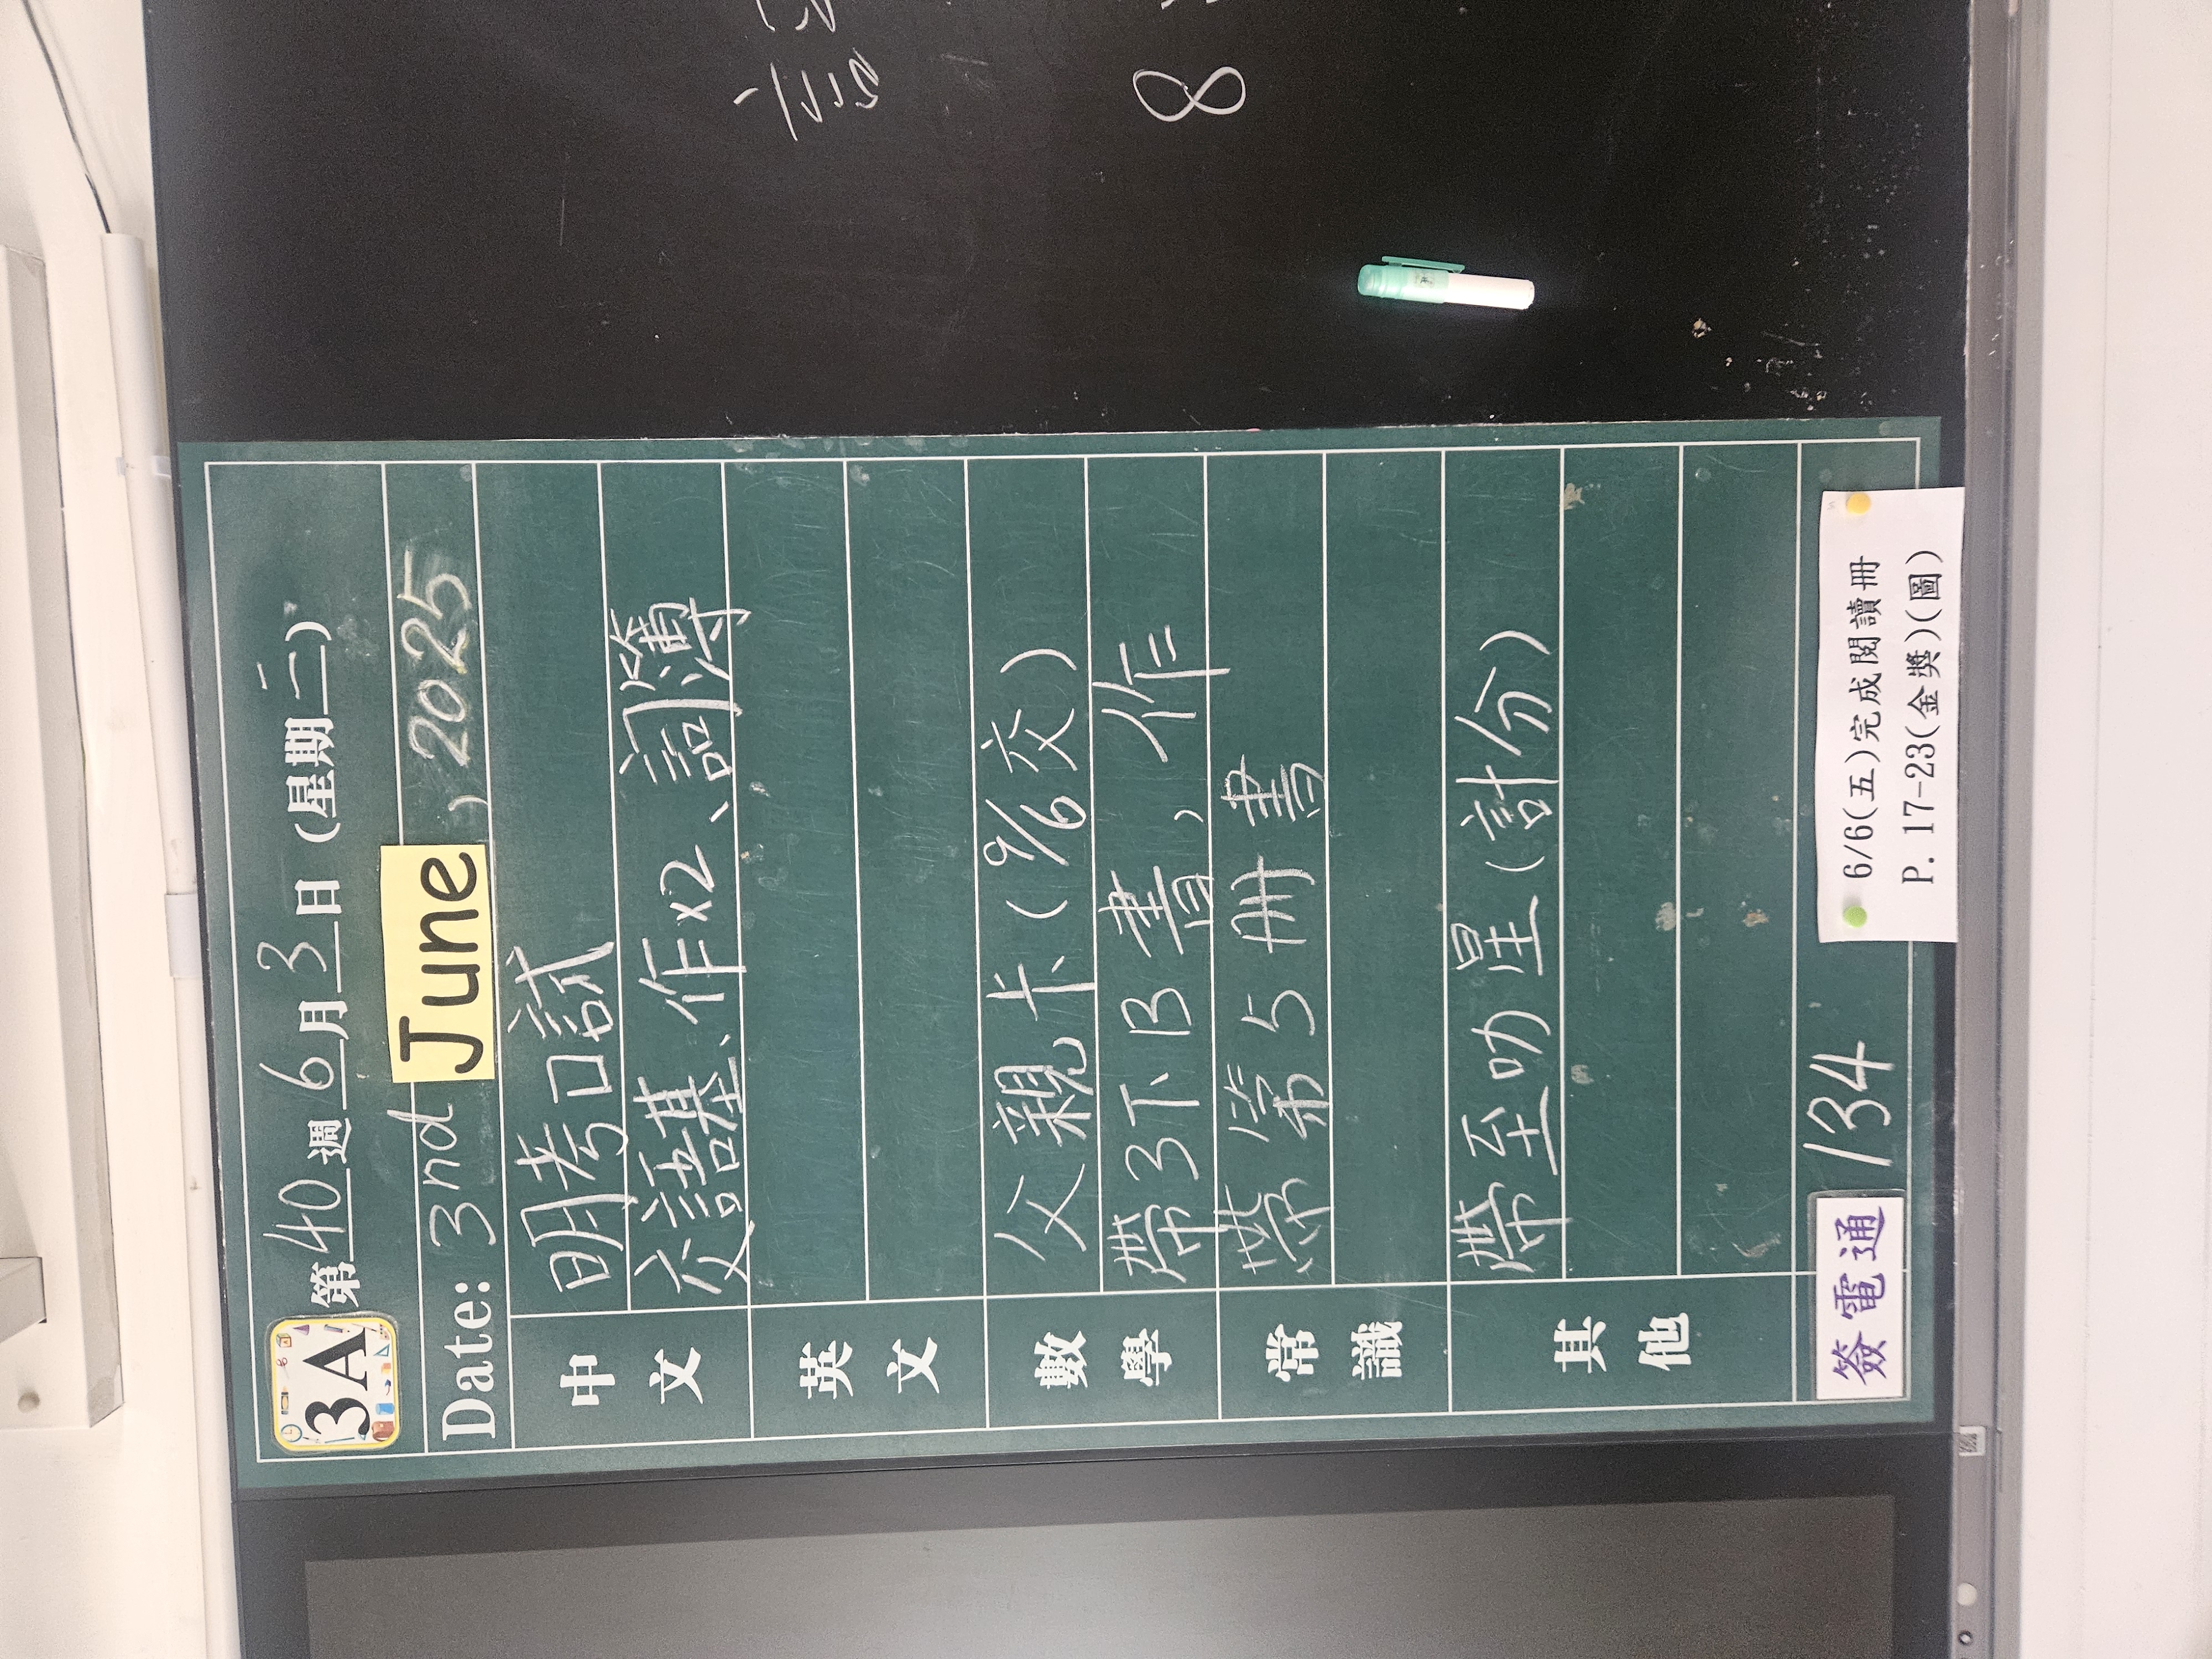 3A 第40週6月3日(星期二)
Date: 3nd June , 2025
中文 明考口試
交語基、作x2、詞簿
英文
數學 父親卡(9/6交)
帶3下B書,作
常識 帶第5冊書
其他 帶至叻星(計分)
簽電通 134
6/6(五)完成閱讀冊
P.17-23(金獎)(圖)
8